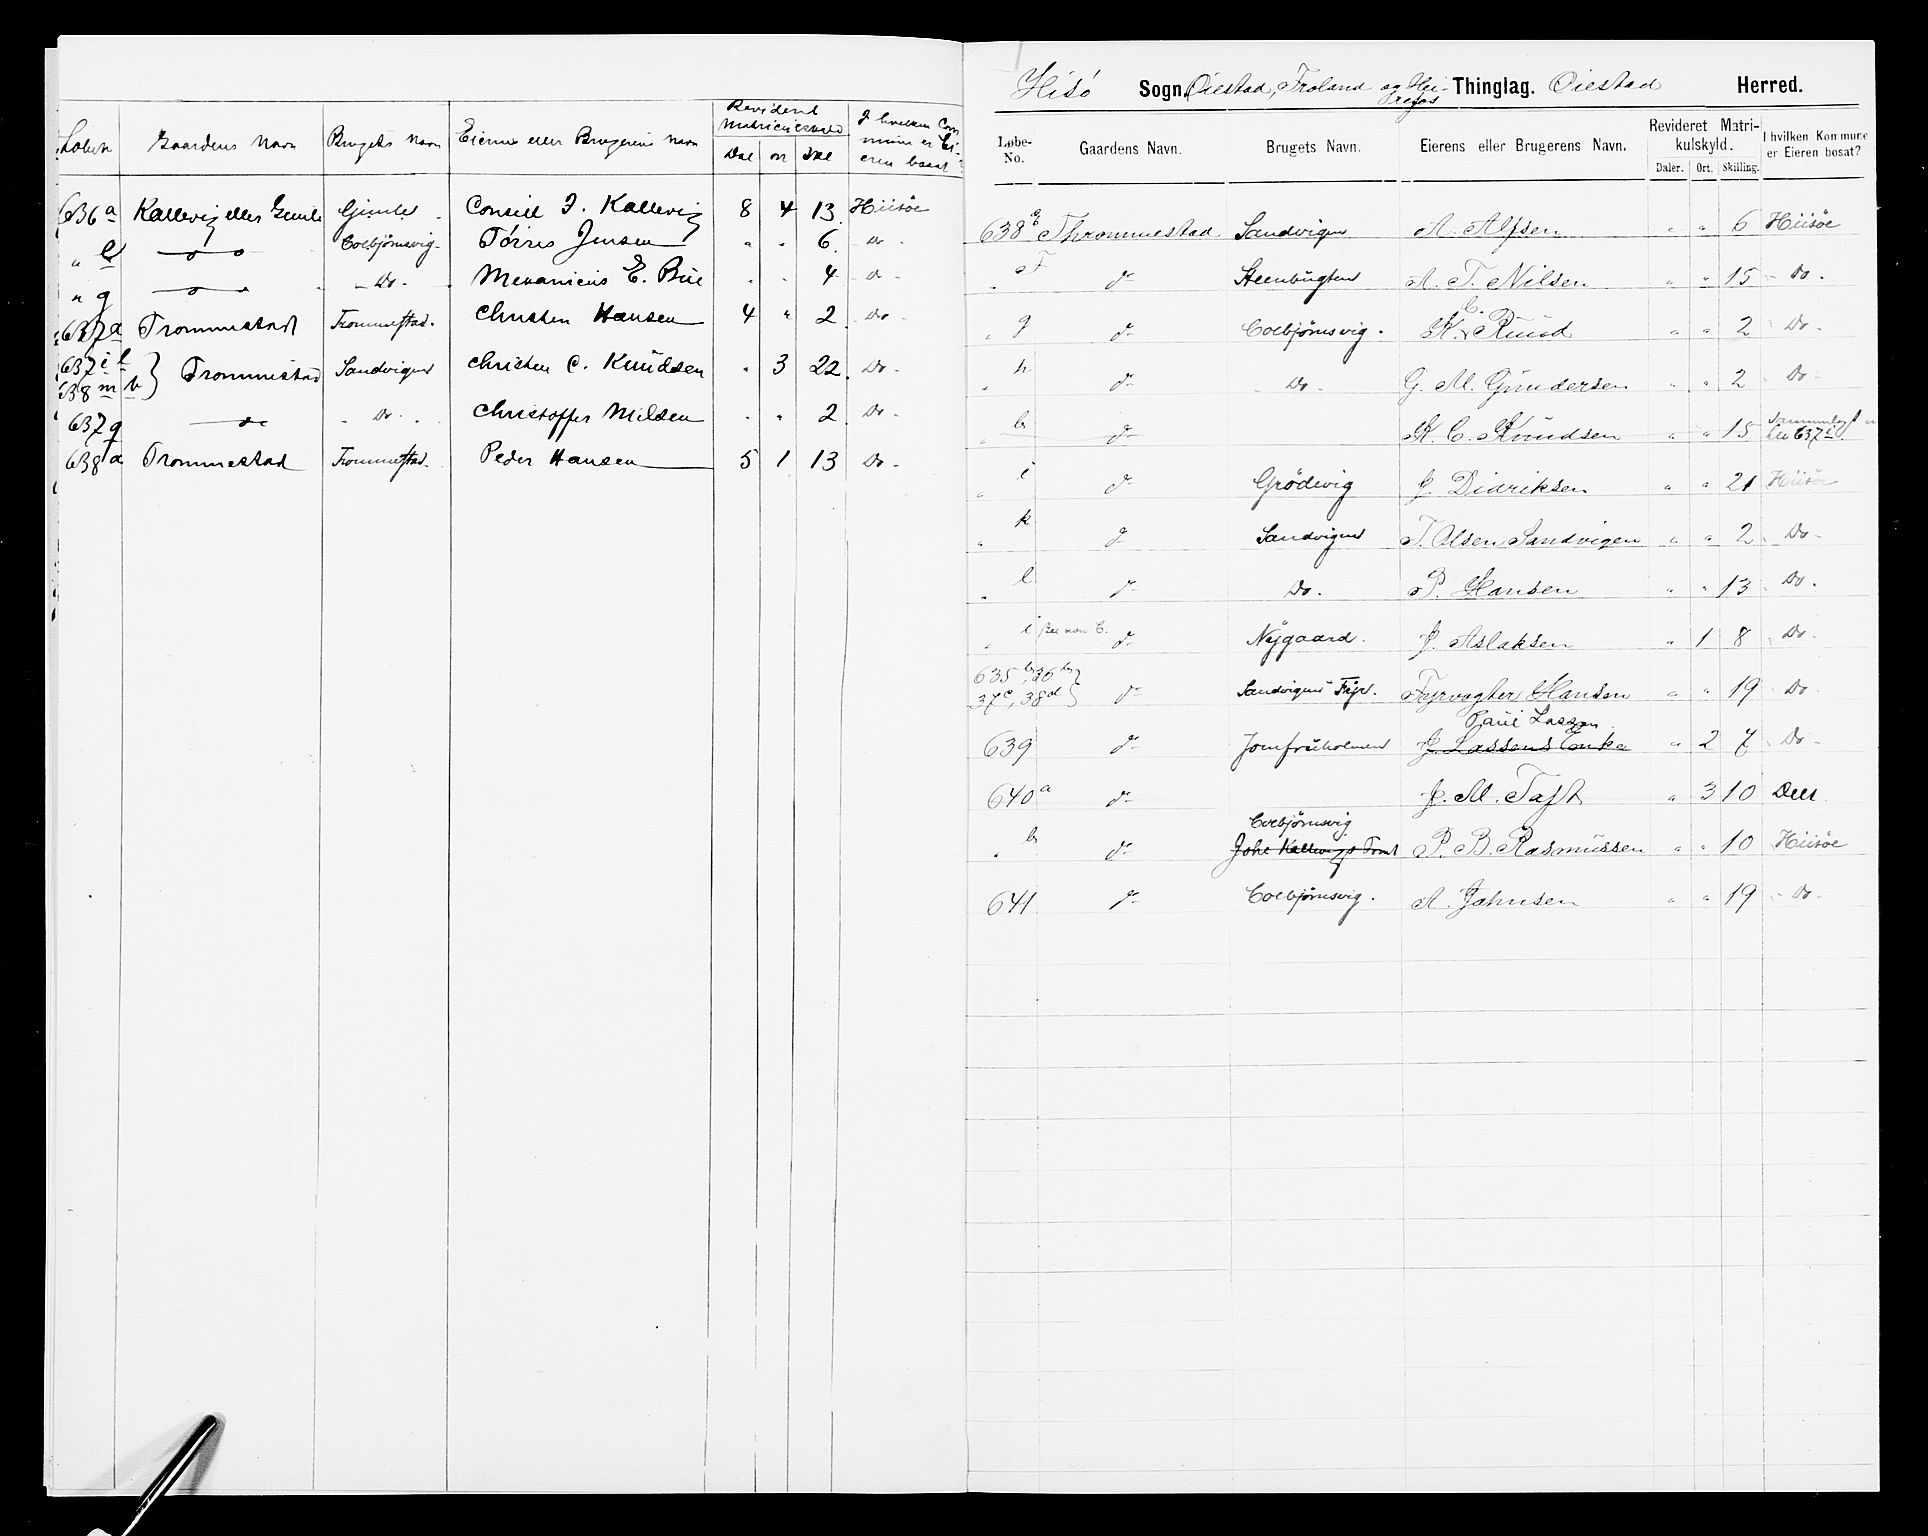 Løben Gaardens Navn Brugets Navn Eierens eller Brugerens Navn Revideret Matriculskyld Dal ort Skl I hvilken Commune er Eieren bosat
636a Kallevig eller Gimle Gimle Consul J. Kallevig 8 4 13 Hiisøe
" e — " — Colbjørnsvig Tørres Jensen " " 6 Do
" g — " — Do Mekanicus E. Bue " " 4 Do
637a Trommestad Trommestad Christen Hansen 4 " 2 Do
637i l 638m b } Trommestad Sandvigen Christen C. Knudsen " 3 22 Do
637q — " — Do Christoffer Nilsen " " 2 Do
638a Trommestad Trommestad Peder Hansen 5 1 13 Do
Hisö Sogn. Öiestad, Froland og Thinglag. Öiestad Herred.
Løbe-No. Gaardens Navn. Brugets Navn. Eierens eller Brugerens Navn. Revideret Matrikulskyld. Daler. Ort. Skilling. I hvilken Kommune er Eieren bosat?
638 Throммestad Sandvigen A. Alfsen " " 6 Hiisøe
" f do Steenbugten A. T. Nilsen " " 15 Do
" g do Colbjørnsvig K. E. Ruud " " 2 Do
" h do Do G. M. Gundersen " " 2 Do
" b do K. C. Knudsen " " 15 637i
" i do Grödevig J. Didriksen " " 21 Hiisøe
" k do Sandvigen T. Olsen Sandvigen " " 2 Do
" l do Do. P. Hansen " " 13 Do.
" i do Nygaard. J. Aslaksen " 1 8 Do
635b, 36b, 37c, 38d } do Sandvigens Fyr. Fyrvogter Hansen " " 19 Do
639 do Jomfruholmen J. Lassens Enke Paul Lassen " 2 7 Do
640a do J. M. Taft " 3 10 Do
" b do Johs Kallevigs Tomt Colbjørnsvig P. B. Rasmussen " " 10 Hiisøe
641 do Colbjørnsvig. A. Jahnsen " " 19 Do